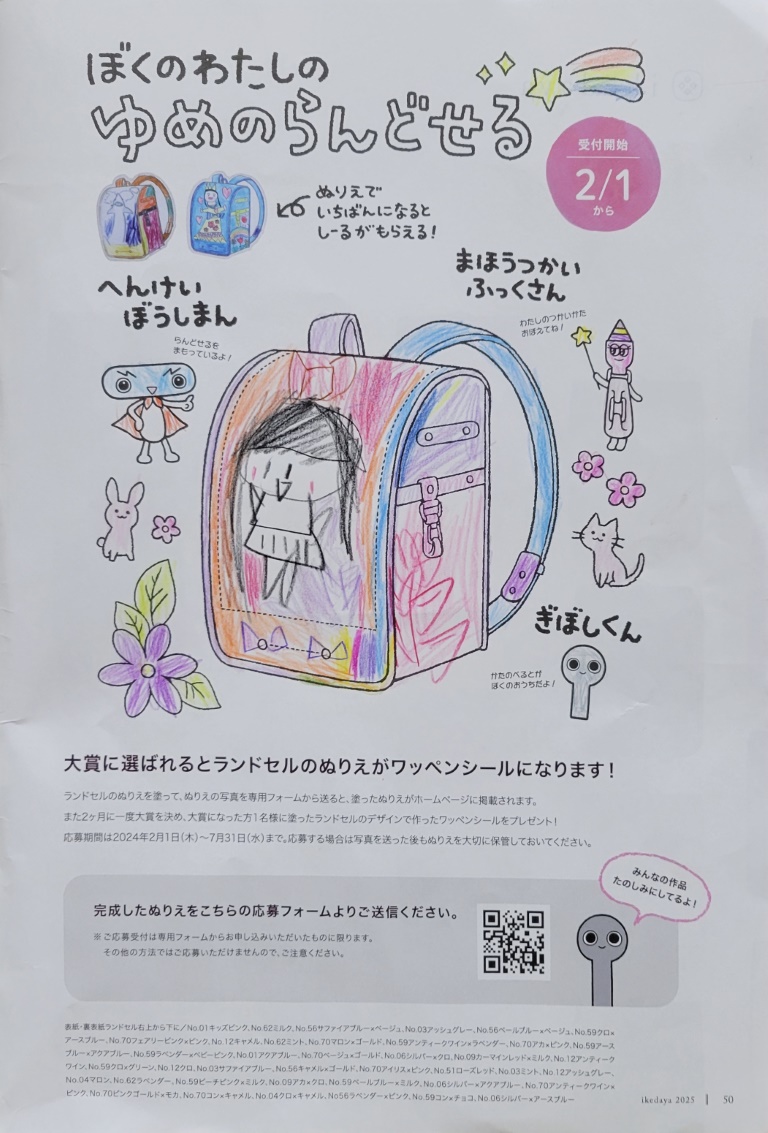 ぼくのわたしの
ゆめのらんどせる
受付開始
2/1
から
ぬりえで
いちばんになると
しーるがもらえる!
へんけい
ぼうしまん
らんどせるを
まもっているよ!
まほうつかい
ふっくさん
わたしのつかいかた
おぼえてね!
ぎぼしくん
かたのべるとが
ぼくのおうちだよ!
大賞に選ばれるとランドセルのぬりえがワッペンシールになります!
ランドセルのぬりえを塗って、ぬりえの写真を専用フォームから送ると、塗ったぬりえがホームページに掲載されます。
また2ヶ月に一度大賞を決め、大賞になった方1名様に塗ったランドセルのデザインで作ったワッペンシールをプレゼント!
応募期間は2024年2月1日(木)〜7月31日(水)まで。応募する場合は写真を送った後もぬりえを大切に保管しておいてください。
完成したぬりえをこちらの応募フォームよりご送信ください。
※ご応募受付は専用フォームからお申し込みいただいたものに限ります。
その他の方法ではご応募いただけませんので、ご注意ください。
みんなの作品
たのしみにしてるよ!
表紙・裏表紙ランドセル右上から下に/No.01キッズピンク、No.62ミルク、No.56サファイアブルー×ベージュ、No.03アッシュグレー、No.56ペールブルー×ベージュ、No.59クロ×
アースブルー、No.70フェアリーピンク×ピンク、No.12キャメル、No.62ミント、No.70マロン×ゴールド、No.59アンティークワイン×ラベンダー、No.70アカ×ピンク、No.59アース
ブルー×アクアブルー、No.59ラベンダー×ベビーピンク、No.01アクアブルー、No.70ベージュ×ゴールド、No.06シルバー×クロ、No.09カーマインレッド×ミルク、No.12アンティーク
ワイン、No.59クロ×グリーン、No.12クロ、No.03サファイアブルー、No.56キャメル×ゴールド、No.70アイリス×ピンク、No.51ローズレッド、No.03ミント、No.12アッシュグレー、
No.04マロン、No.62ラベンダー、No.59ピーチピンク×ミルク、No.09アカ×クロ、No.59ペールブルー×ミルク、No.06シルバー×アクアブルー、No.70アンティークワイン×
ピンク、No.70ピンクゴールド×モカ、No.70コン×キャメル、No.04クロ×キャメル、No56ラベンダー×ピンク、No.59コン×チョコ、No.06シルバー×アースブルー
ikedaya 2025 | 50